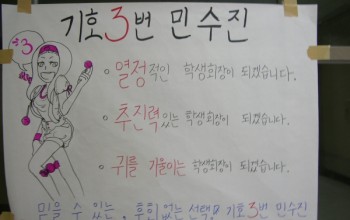 기호3번 민수진
3
• 열정적인 학생회장이 되겠습니다.
• 추진력있는 학생회장이 되겠습니다.
• 귀를 기울이는 학생회장이 되겠습니다.
믿을 수 있는, 후회 없는 선택!! 기호3번 민수진